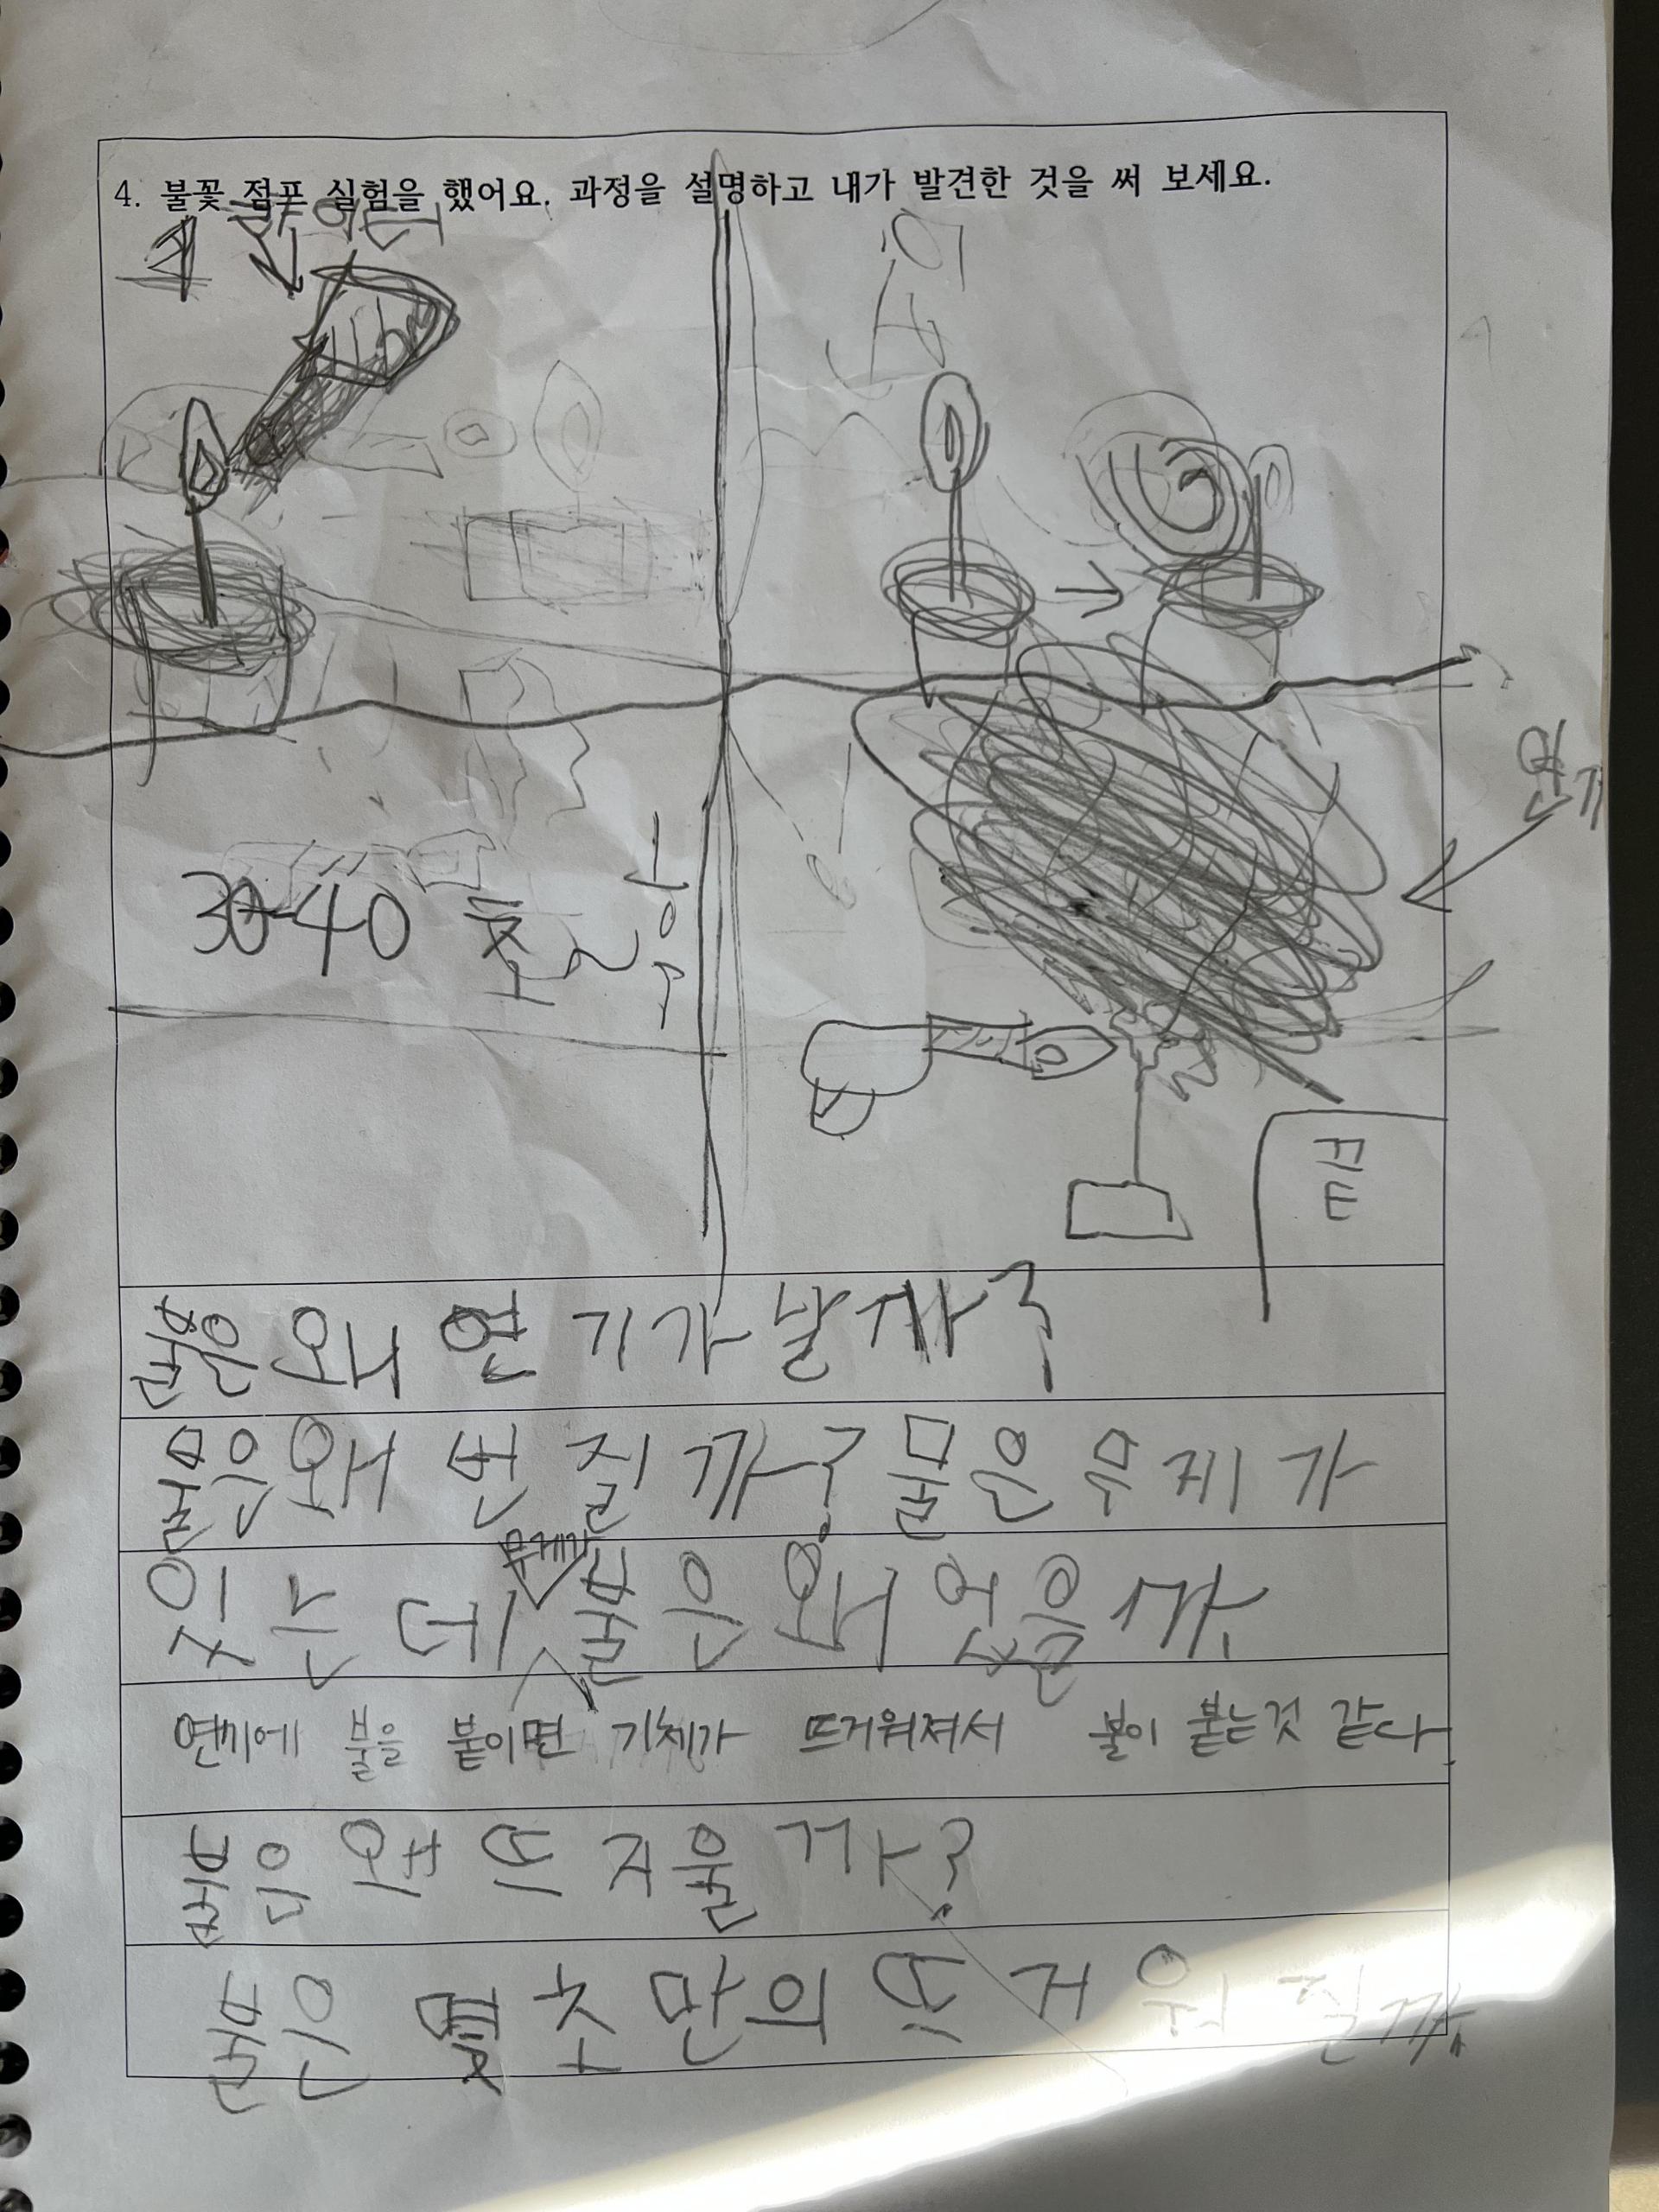 4. 불꽃 점프 실험을 했어요. 과정을 설명하고 내가 발견한 것을 써 보세요.
연기
30-40 초
끝
불은 왜 연기가 날까?
불은 왜 번질까? 물은 무게가
있는데 불은 무게가 왜 없을까.
연기에 불을 붙이면 기체가 뜨거워져서 불이 붙는것 같다.
불은 왜 뜨거울까?
불은 몇초만의 뜨거워질까